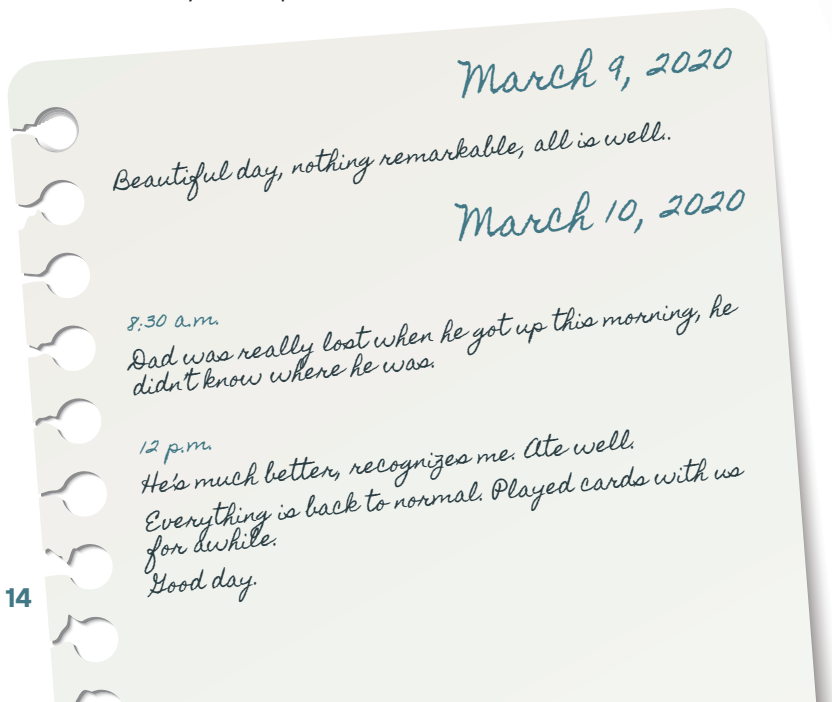 March 9, 2020
Beautiful day, nothing remarkable, all is well.
March 10, 2020
8:30 a.m.
Dad was really lost when he got up this morning, he
didn't know where he was.
12 p.m.
He's much better, recognizes me. Ate well.
Everything is back to normal. Played cards with us
for awhile.
Good day.
14